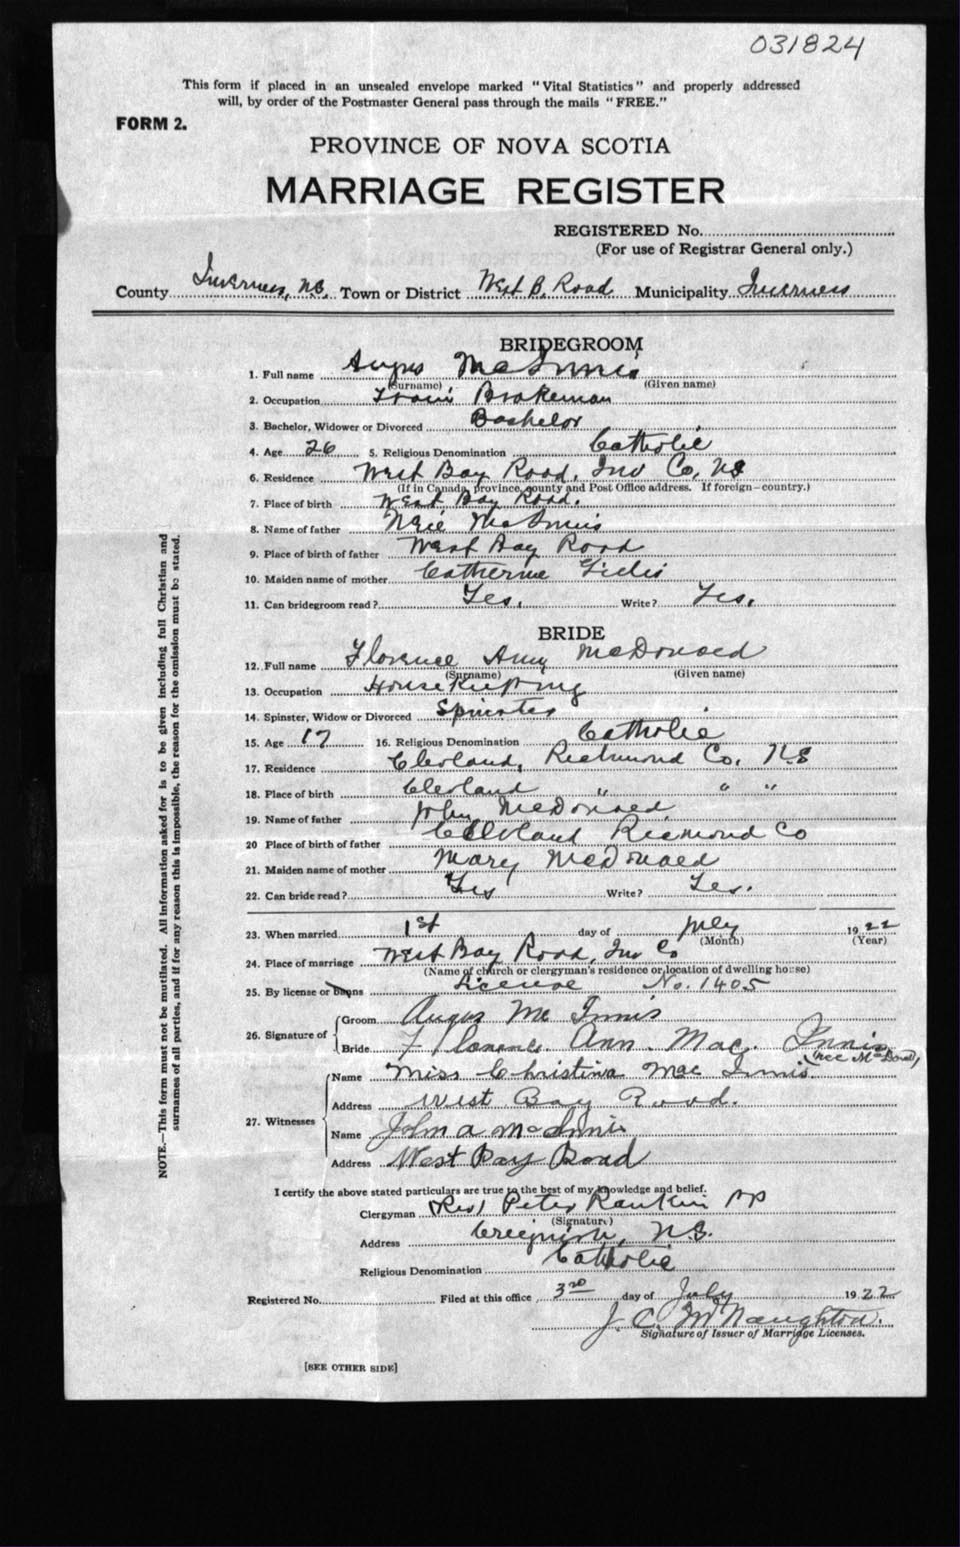 031824
This form if placed in an unsealed envelope marked "Vital Statistics" and properly addressed
will, by order of the Postmaster General pass through the mails "FREE."
FORM 2.
PROVINCE OF NOVA SCOTIA
MARRIAGE REGISTER
REGISTERED No.
(For use of Registrar General only.)
County Inverness, N.S. Town or District West B. Road Municipality Inverness
BRIDEGROOM
1. Full name Angus McInnis
(Surname) (Given name)
2. Occupation Train Brakeman
3. Bachelor, Widower or Divorced Bachelor
4. Age 26 5. Religious Denomination Catholic
6. Residence West Bay Road, Inv Co, NS
(If in Canada, province, county and Post Office address. If foreign—country.)
7. Place of birth West Bay Road,
8. Name of father Neil McInnis
9. Place of birth of father West Bay Road
10. Maiden name of mother Catherine
11. Can bridegroom read? Yes, Write? Yes,
BRIDE
12. Full name Florence Amy McDonald
(Surname) (Given name)
13. Occupation Housekeeping
14. Spinster, Widow or Divorced Spinster
15. Age 17 16. Religious Denomination Catholic
17. Residence Clevland, Richmond Co, NS
18. Place of birth Clevland " " "
19. Name of father John McDonald
20 Place of birth of father Clevland Richmond Co
21. Maiden name of mother Mary McDonald
22. Can bride read? Yes Write? Yes.
23. When married 1st day of July 1922
(Month) (Year)
24. Place of marriage West Bay Road, Inv Co
(Name of church or clergyman's residence or location of dwelling house)
25. By license or banns License No. 1405
26. Signature of Groom Angus McInnis
Bride Florence Ann MacInnis
(nee McDonell)
27. Witnesses Name Miss Christina MacInnis
Address West Bay Road.
Name John A McInnis
Address West Bay Road
I certify the above stated particulars are true to the best of my knowledge and belief.
Clergyman (Rev) Peter Rankin PP
(Signature)
Address Creignish, N.S.
Religious Denomination Catholic
Registered No. Filed at this office 3rd day of July 1922
J. C. McNaughton.
Signature of Issuer of Marriage Licenses.
[SEE OTHER SIDE]
NOTE.—This form must not be mutilated. All information asked for is to be given including full Christian and
surnames of all parties, and if for any reason this is impossible, the reason for the omission must be stated.